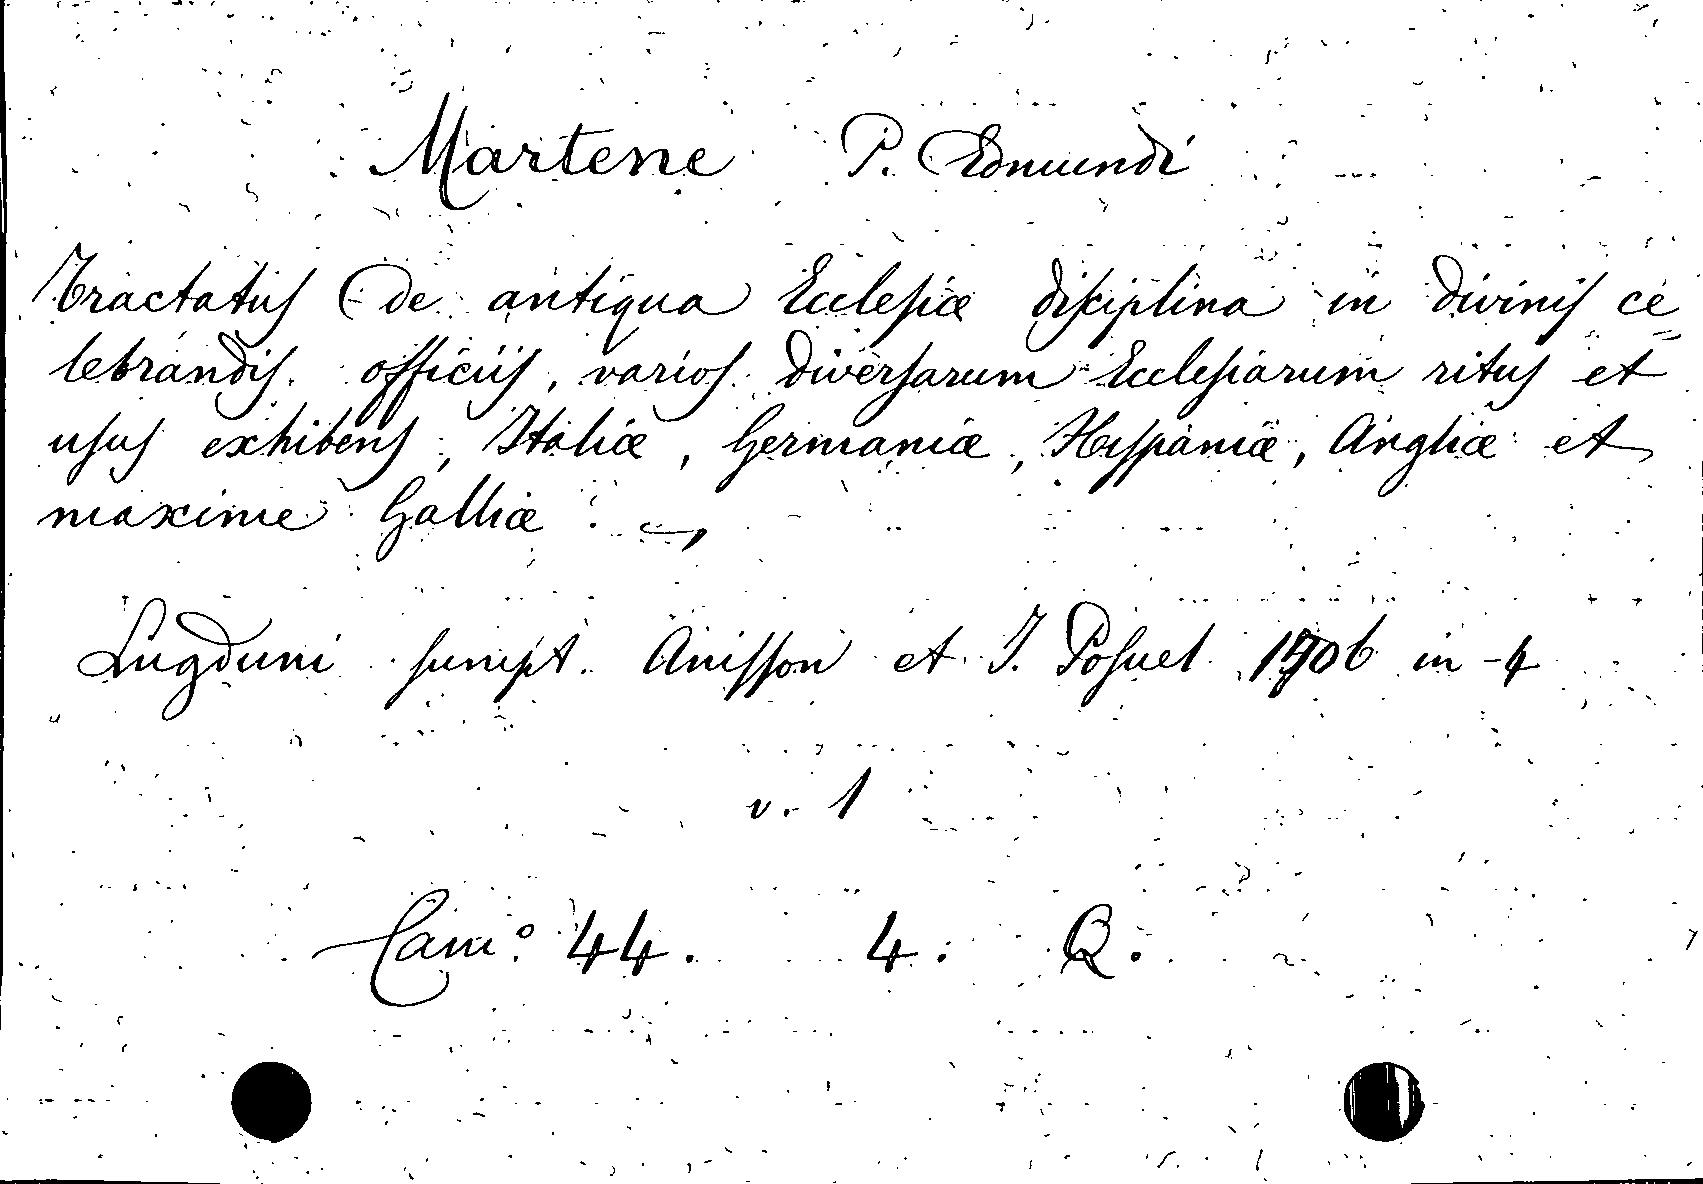 Martene P. Edmundi
Tractatuſ de antiqua Eccleſiæ diſciplina in diviniſ ce=
lebrandiſ officiiſ, varioſ diverſarum Eccleſiarum rituſ et
uſuſ exhibenſ, Italiæ, Germaniæ, Hyſpaniæ, Angliæ et
maxime Galliæ.
Lugduni ſumpt. Aniſſon et J. Poſuel 1706 in-4
v. 1
Cam.º 44. 4. Q.